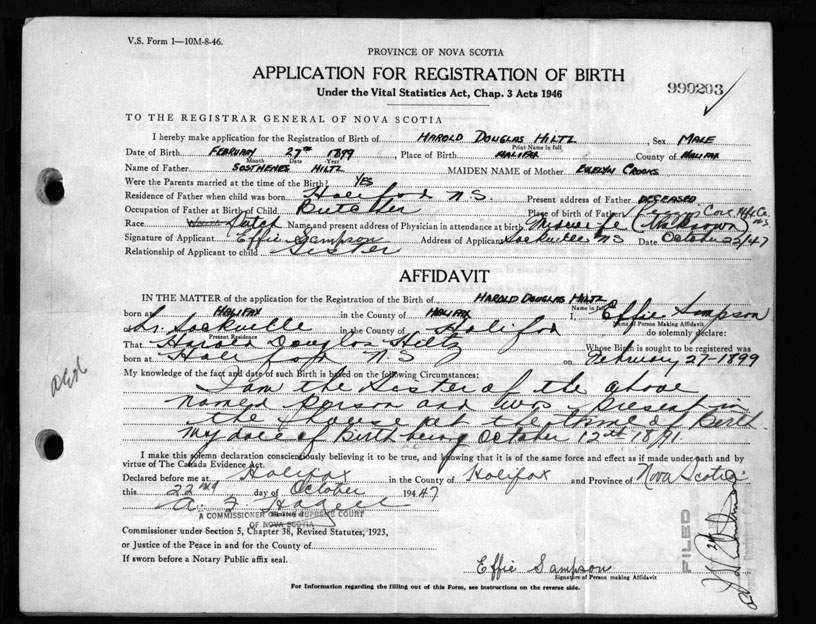 V.S. Form 1—10M-8-46.
PROVINCE OF NOVA SCOTIA
APPLICATION FOR REGISTRATION OF BIRTH
Under the Vital Statistics Act, Chap. 3 Acts 1946
990203
TO THE REGISTRAR GENERAL OF NOVA SCOTIA
I hereby make application for the Registration of Birth of HAROLD DOUGLAS HILTZ Sex MALE
Print Name in full
Date of Birth FEBRUARY 27TH 1899 Place of Birth HALIFAX County of HALIFAX
Month Date Year
Name of Father SOSTHENES HILTZ MAIDEN NAME of Mother EVELYN CROOKS
Were the Parents married at the time of the Birth? YES
Residence of Father when child was born Halifax N.S. Present address of Father DECEASED
Occupation of Father at Birth of Child Butcher Place of birth of Father Cove Hfx Co. N.S
Race Dutch Name and present address of Physician in attendance at birth Midwife (Unknown)
Signature of Applicant Effie Sampson Address of Applicant Sackville NS Date October 22/47
Relationship of Applicant to child Sister
AFFIDAVIT
IN THE MATTER of the application for the Registration of the Birth of HAROLD DOUGLAS HILTZ
Name in full
born at HALIFAX in the County of HALIFAX I, Effie Sampson
Name of Person Making Affidavit
of Lr. Sackville in the County of Halifax do solemnly declare:
Present Residence
That Harold Douglas Hiltz Whose Birth is sought to be registered was
born at Halifax NS on February 27-1899
My knowledge of the fact and date of such Birth is Based on the following Circumstances:
I am the Sister of the above
named person and was present in
the house at the time of Birth.
My date of Birth being October 12th 1891.
I make this solemn declaration conscientiously believing it to be true, and knowing that it is of the same force and effect as if made under oath and by
virtue of The Canada Evidence Act.
Declared before me at Halifax in the County of Halifax and Province of Nova Scotia
this 22nd day of October 1947
A COMMISSIONER SUPREME COURT
OF NOVA SCOTIA
Commissioner under Section 5, Chapter 38, Revised Statutes, 1923,
or Justice of the Peace in and for the County of
If sworn before a Notary Public affix seal.
Effie Sampson
Signature of Person making Affidavit
For Information regarding the filling out of this Form, see instructions on the reverse side.
FILED